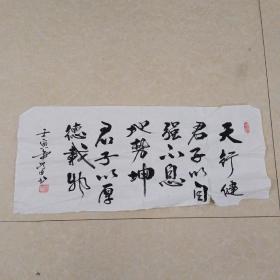 天行健
君子以自
强不息
地势坤
君子以厚
德载物
壬寅